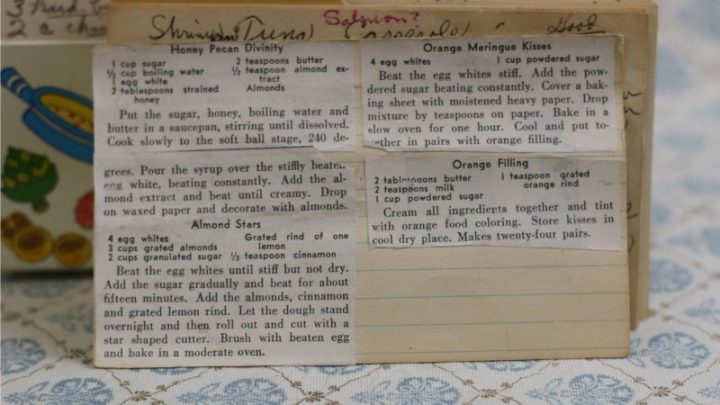 3 Hard
2 a
Salmon?
Shrimp Tuna Casserole Good
Honey Pecan Divinity
1 cup sugar
½ cup boiling water
1 egg white
2 tablespoons strained
honey
2 teaspoons butter
½ teaspoon almond ex-
tract
Almonds
Put the sugar, honey, boiling water and
butter in a saucepan, stirring until dissolved.
Cook slowly to the soft ball stage, 240 de-
grees. Pour the syrup over the stiffly beaten
egg white, beating constantly. Add the al-
mond extract and beat until creamy. Drop
on waxed paper and decorate with almonds.
Almond Stars
4 egg whites
3 cups grated almonds
2 cups granulated sugar
Grated rind of one
lemon
½ teaspoon cinnamon
Beat the egg whites until stiff but not dry.
Add the sugar gradually and beat for about
fifteen minutes. Add the almonds, cinnamon
and grated lemon rind. Let the dough stand
overnight and then roll out and cut with a
star shaped cutter. Brush with beaten egg
and bake in a moderate oven.
Orange Meringue Kisses
4 egg whites
1 cup powdered sugar
Beat the egg whites stiff. Add the pow-
dered sugar beating constantly. Cover a bak-
ing sheet with moistened heavy paper. Drop
mixture by teaspoons on paper. Bake in a
slow oven for one hour. Cool and put to-
gether in pairs with orange filling.
Orange Filling
2 tablespoons butter
2 teaspoons milk
1 cup powdered sugar
1 teaspoon grated
orange rind
Cream all ingredients together and tint
with orange food coloring. Store kisses in
cool dry place. Makes twenty-four pairs.